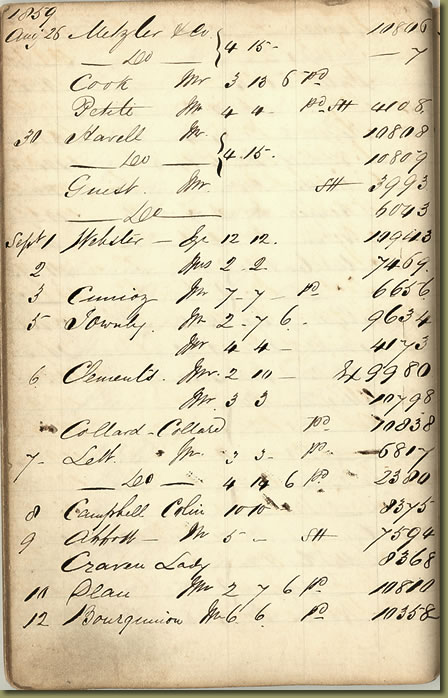 1859
Aug 26 Metzler & Co 4 15 - 10806
— Do — — 7
Cook Mr 3 13 6 Pd
Petite Mr 4 4 - Pd SH 4108
30 Havell Mr 4.15. 10808
— Do — 10809
Guest. Mr. SH 3993
— Do — 6043
Sept 1 Webster — Ge 12 12. 10943
2 Mrs 2 - 2. 7469.
3 Mr 7 - 7 - Pd 6656
5 Townly. Mr 2 - 7 6. 9634
Mr 4 4 - 4173
6. Clements. Mr. 2 10 — Ex 9980
Mr 3 3 10798
Collard - Collard Pd 10838
7 - Lett. Mr. 3 3 - Pd - 6817
— Do — 4 14 6 Pd 2380
8 Campbell Colin 10 10 8375
9 Abbott - Mr 5 - SH 7594
Craven Lady 8368
10 Mr 2 7 6 Pd 10810
12 Bourguinion Mr 6. 6. Pd 10358